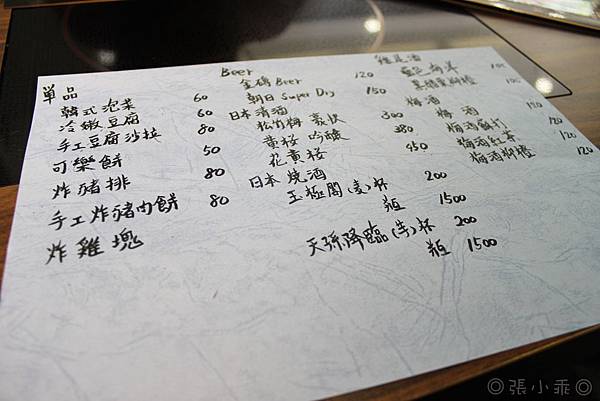 單品
韓式泡菜 60
冷緻豆腐 60
手工豆腐沙拉 80
可樂餅 50
炸豬排 80
手工炸豬肉餅 80
炸雞塊
Beer
金磚Beer 120
朝日Super Dry 150
日本清酒
松竹梅 豪快 300
黃桜 吟釀 380
花黃桜 450
日本燒酒
玉極閣(麦)杯 200
瓶 1500
天孫降臨(芋)杯 200
瓶 1500
藍色海洋
梅酒
梅酒 120
梅酒蘇打 120
梅酒紅茶 120
梅酒柳橙 120
◎張小乖◎